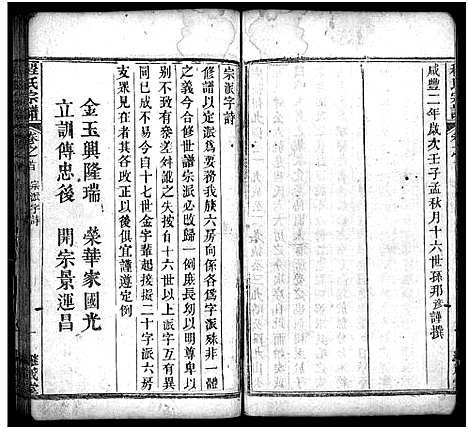 咸豐二年歲次壬子孟秋月十六世孫邦彥謹撰
宗派字詩
修譜以定派為要務我族六房向係各為字派殊非一體
之義今合修世譜宗派必故歸一例庶長幼以明尊卑以
別不致有參差舛訛之失按自十六世以上派字互有異
同已成不易今自十七世金字輩起接擬二十字派六房
支眾見在者改正以後俱宜謹遵定例
金玉興隆瑞　榮華家國光
立訓傳忠後　開宗景運昌
程氏宗譜
卷之首
宗派字詩
一